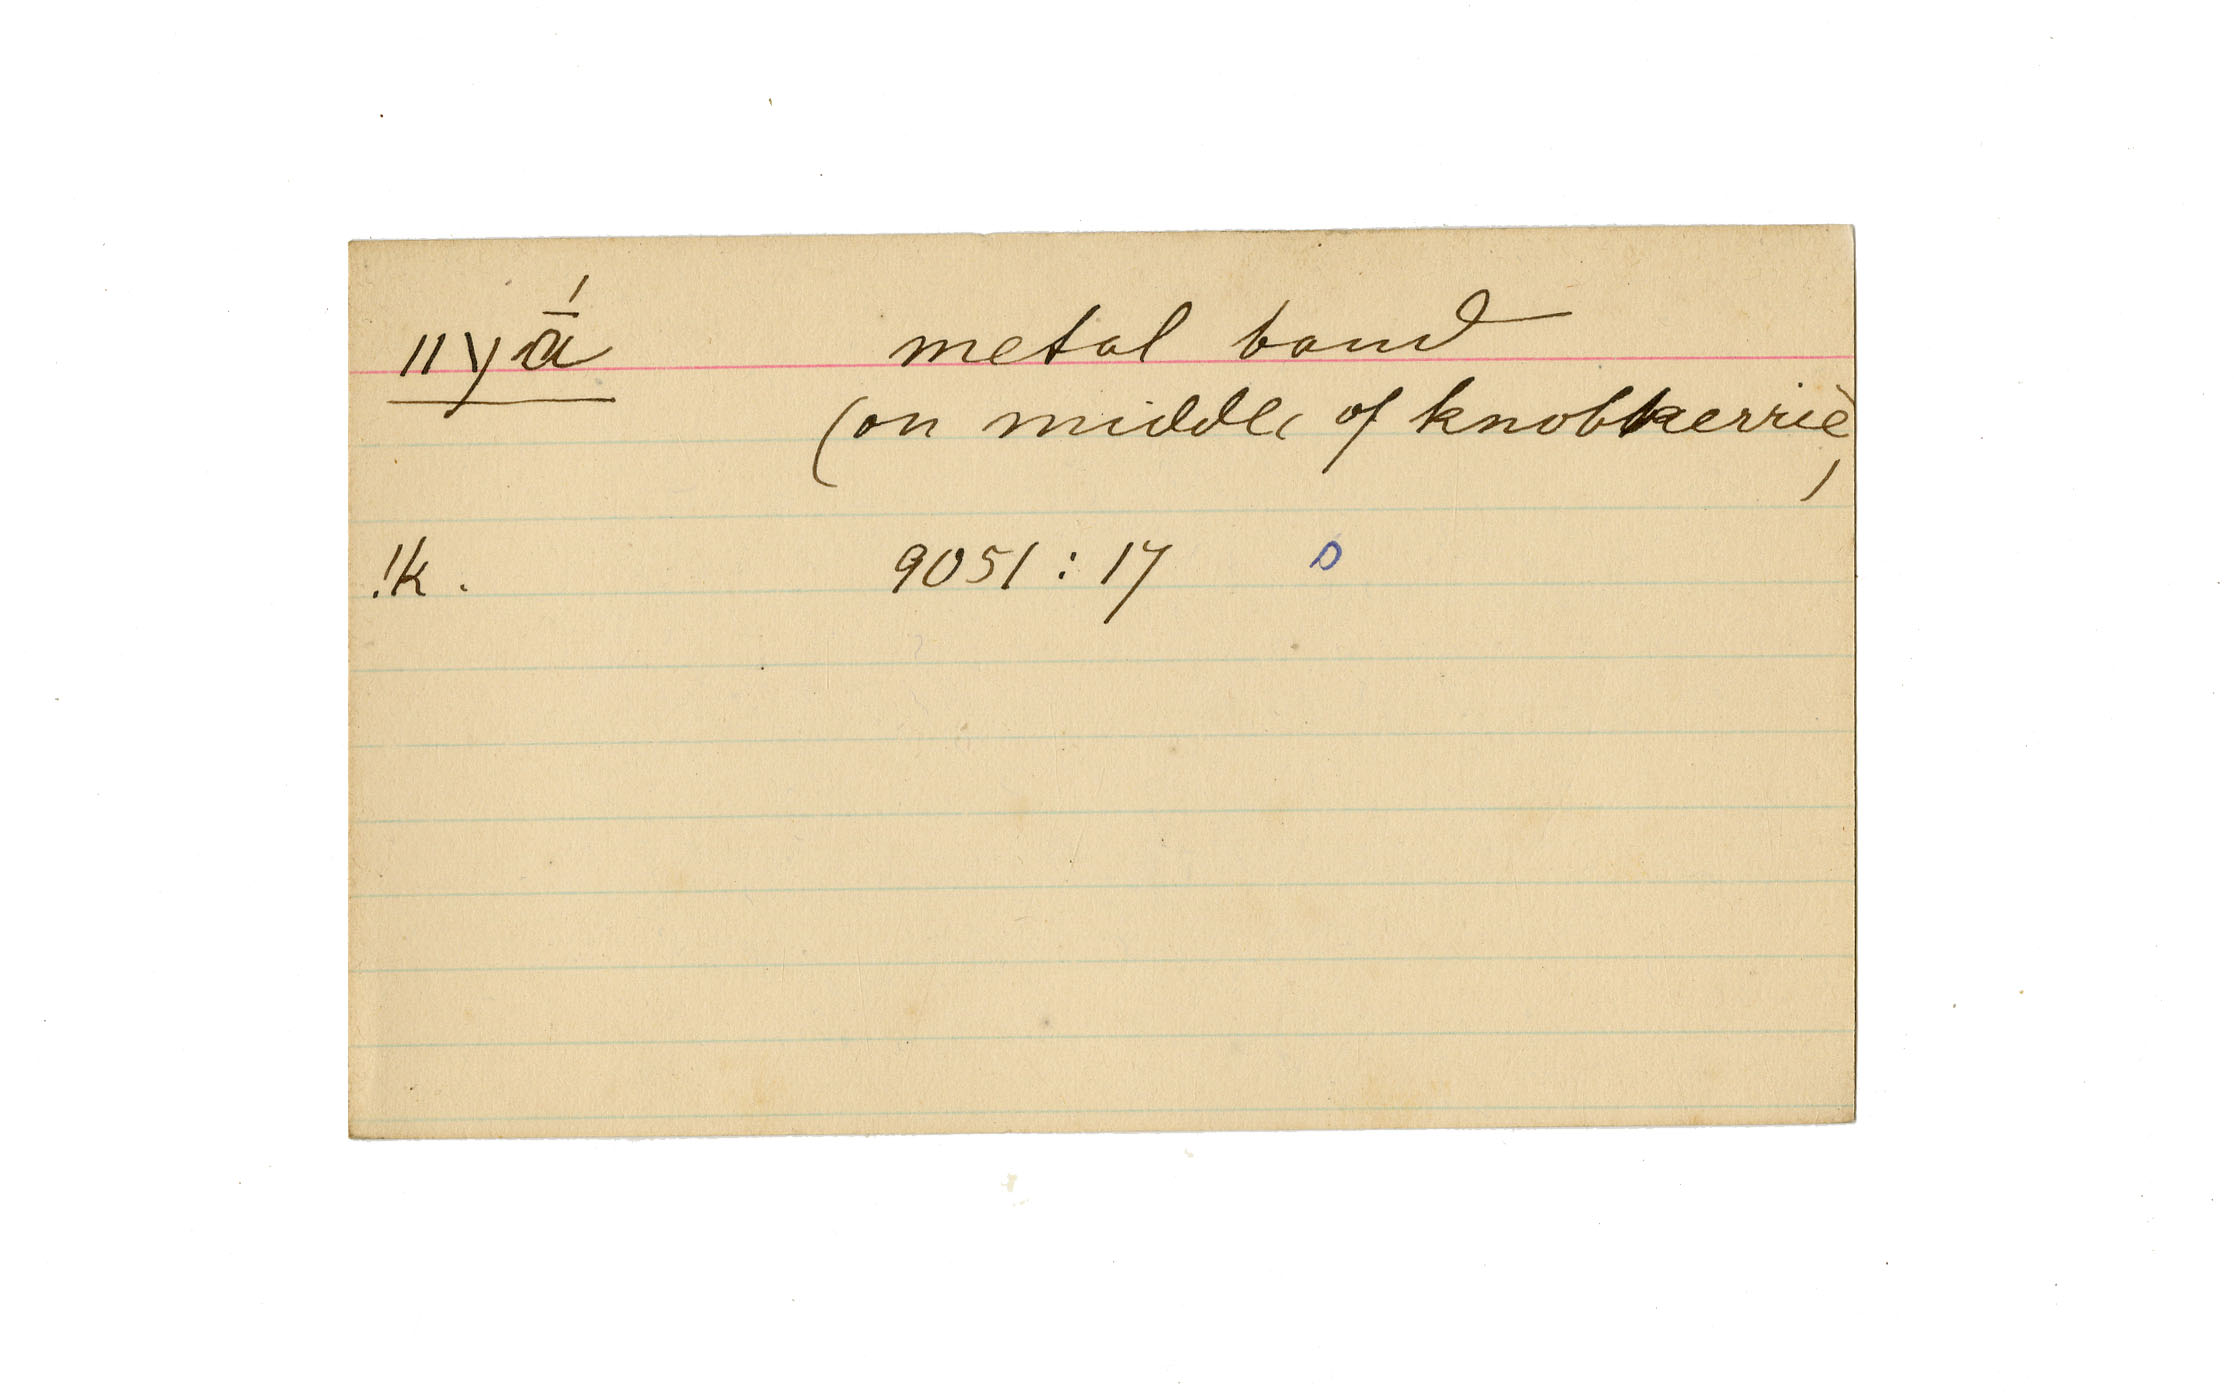 ǁyā́ metal band
(on middle of knobkerrie)
!k. 9051 : 17 D